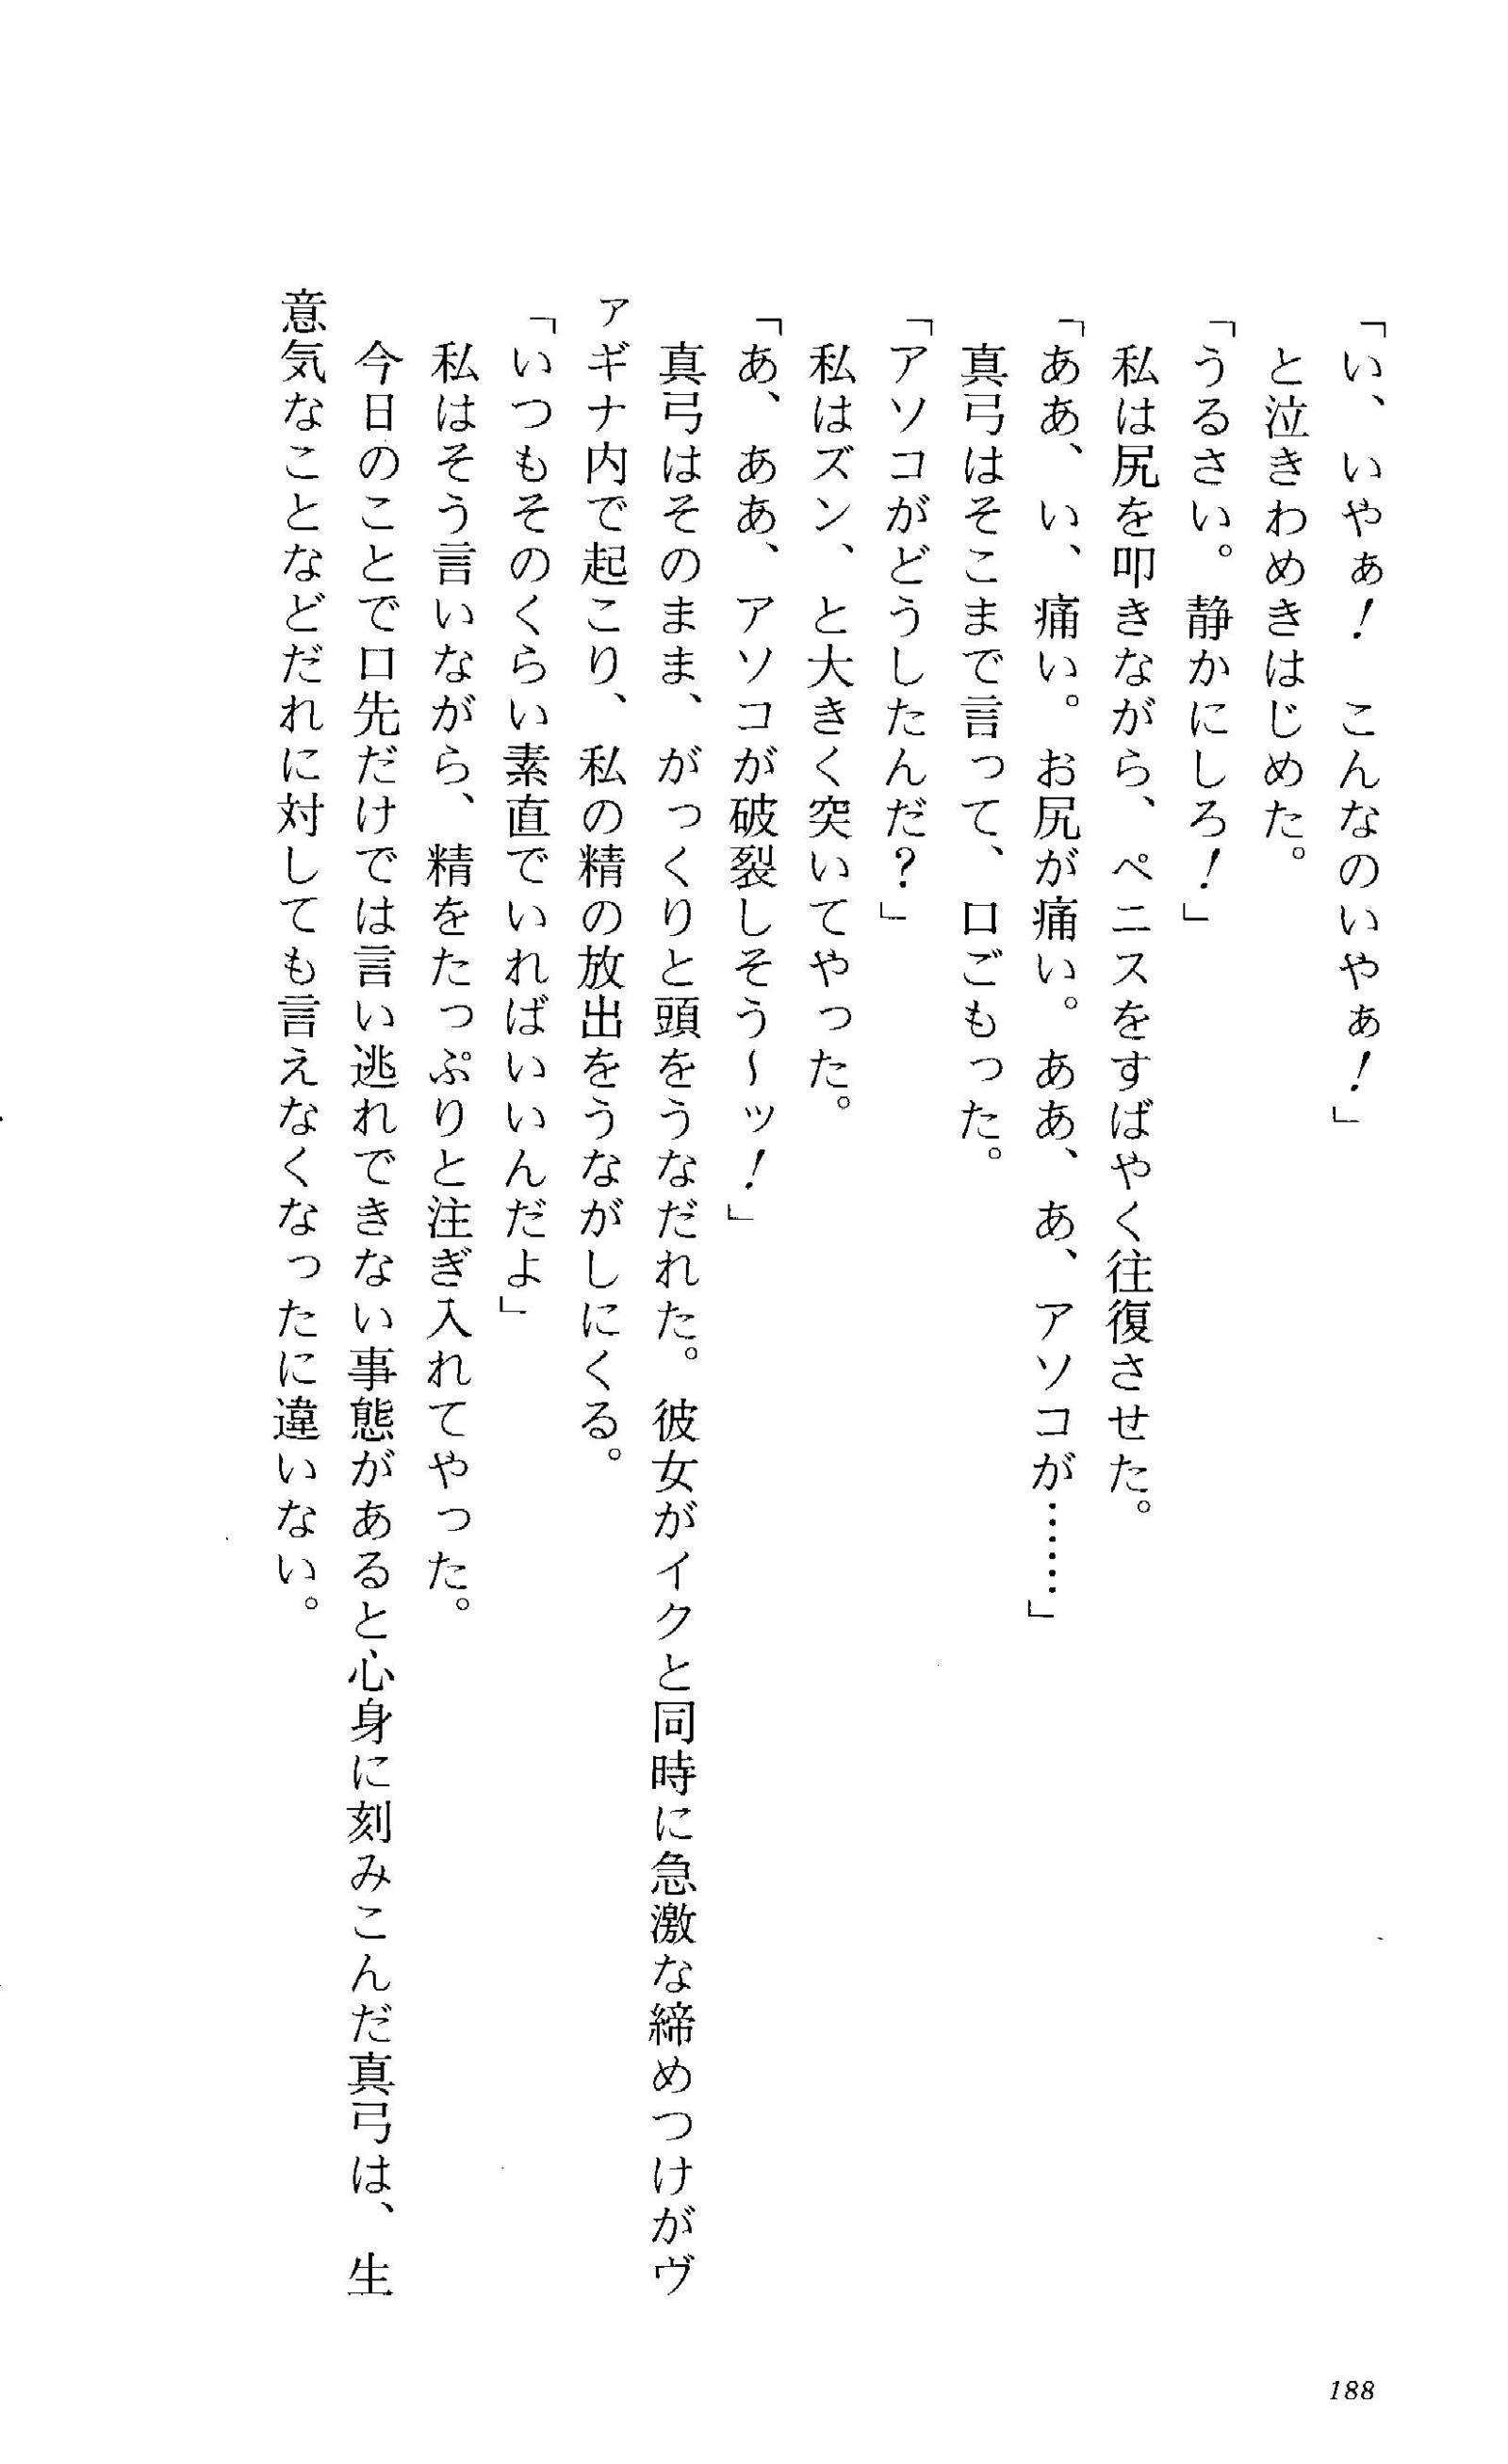 「い、いやぁ！　こんなのいやぁ！」
と泣きわめきはじめた。
「うるさい。静かにしろ！」
私は尻を叩きながら、ペニスをすばやく往復させた。
「ああ、い、痛い。お尻が痛い。ああ、あ、アソコが……」
真弓はそこまで言って、口ごもった。
「アソコがどうしたんだ？」
私はズン、と大きく突いてやった。
「あ、ああ、アソコが破裂しそう〜ッ！」
真弓はそのまま、がっくりと頭をうなだれた。彼女がイクと同時に急激な締めつけがヴ
ァギナ内で起こり、私の精の放出をうながしにくる。
「いつもそのくらい素直でいればいいんだよ」
私はそう言いながら、精をたっぷりと注ぎ入れてやった。
今日のことで口先だけでは言い逃れできない事態があると心身に刻みこんだ真弓は、生
意気なことなどだれに対しても言えなくなったに違いない。
188